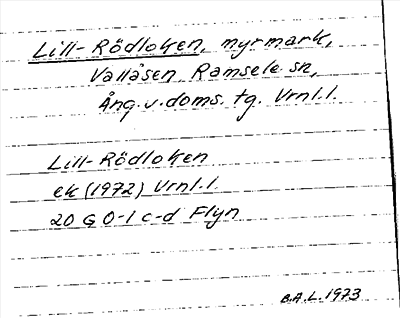 Lill-Rödloken, myrmark,
Vallåsen, Ramsele sn,
Ång. v. doms. tg. Vrnl.l.
Lill-Rödloken
ek (1972) Vrnl.l.
20 G 0-1 c-d Flyn
B.A.L. 1973